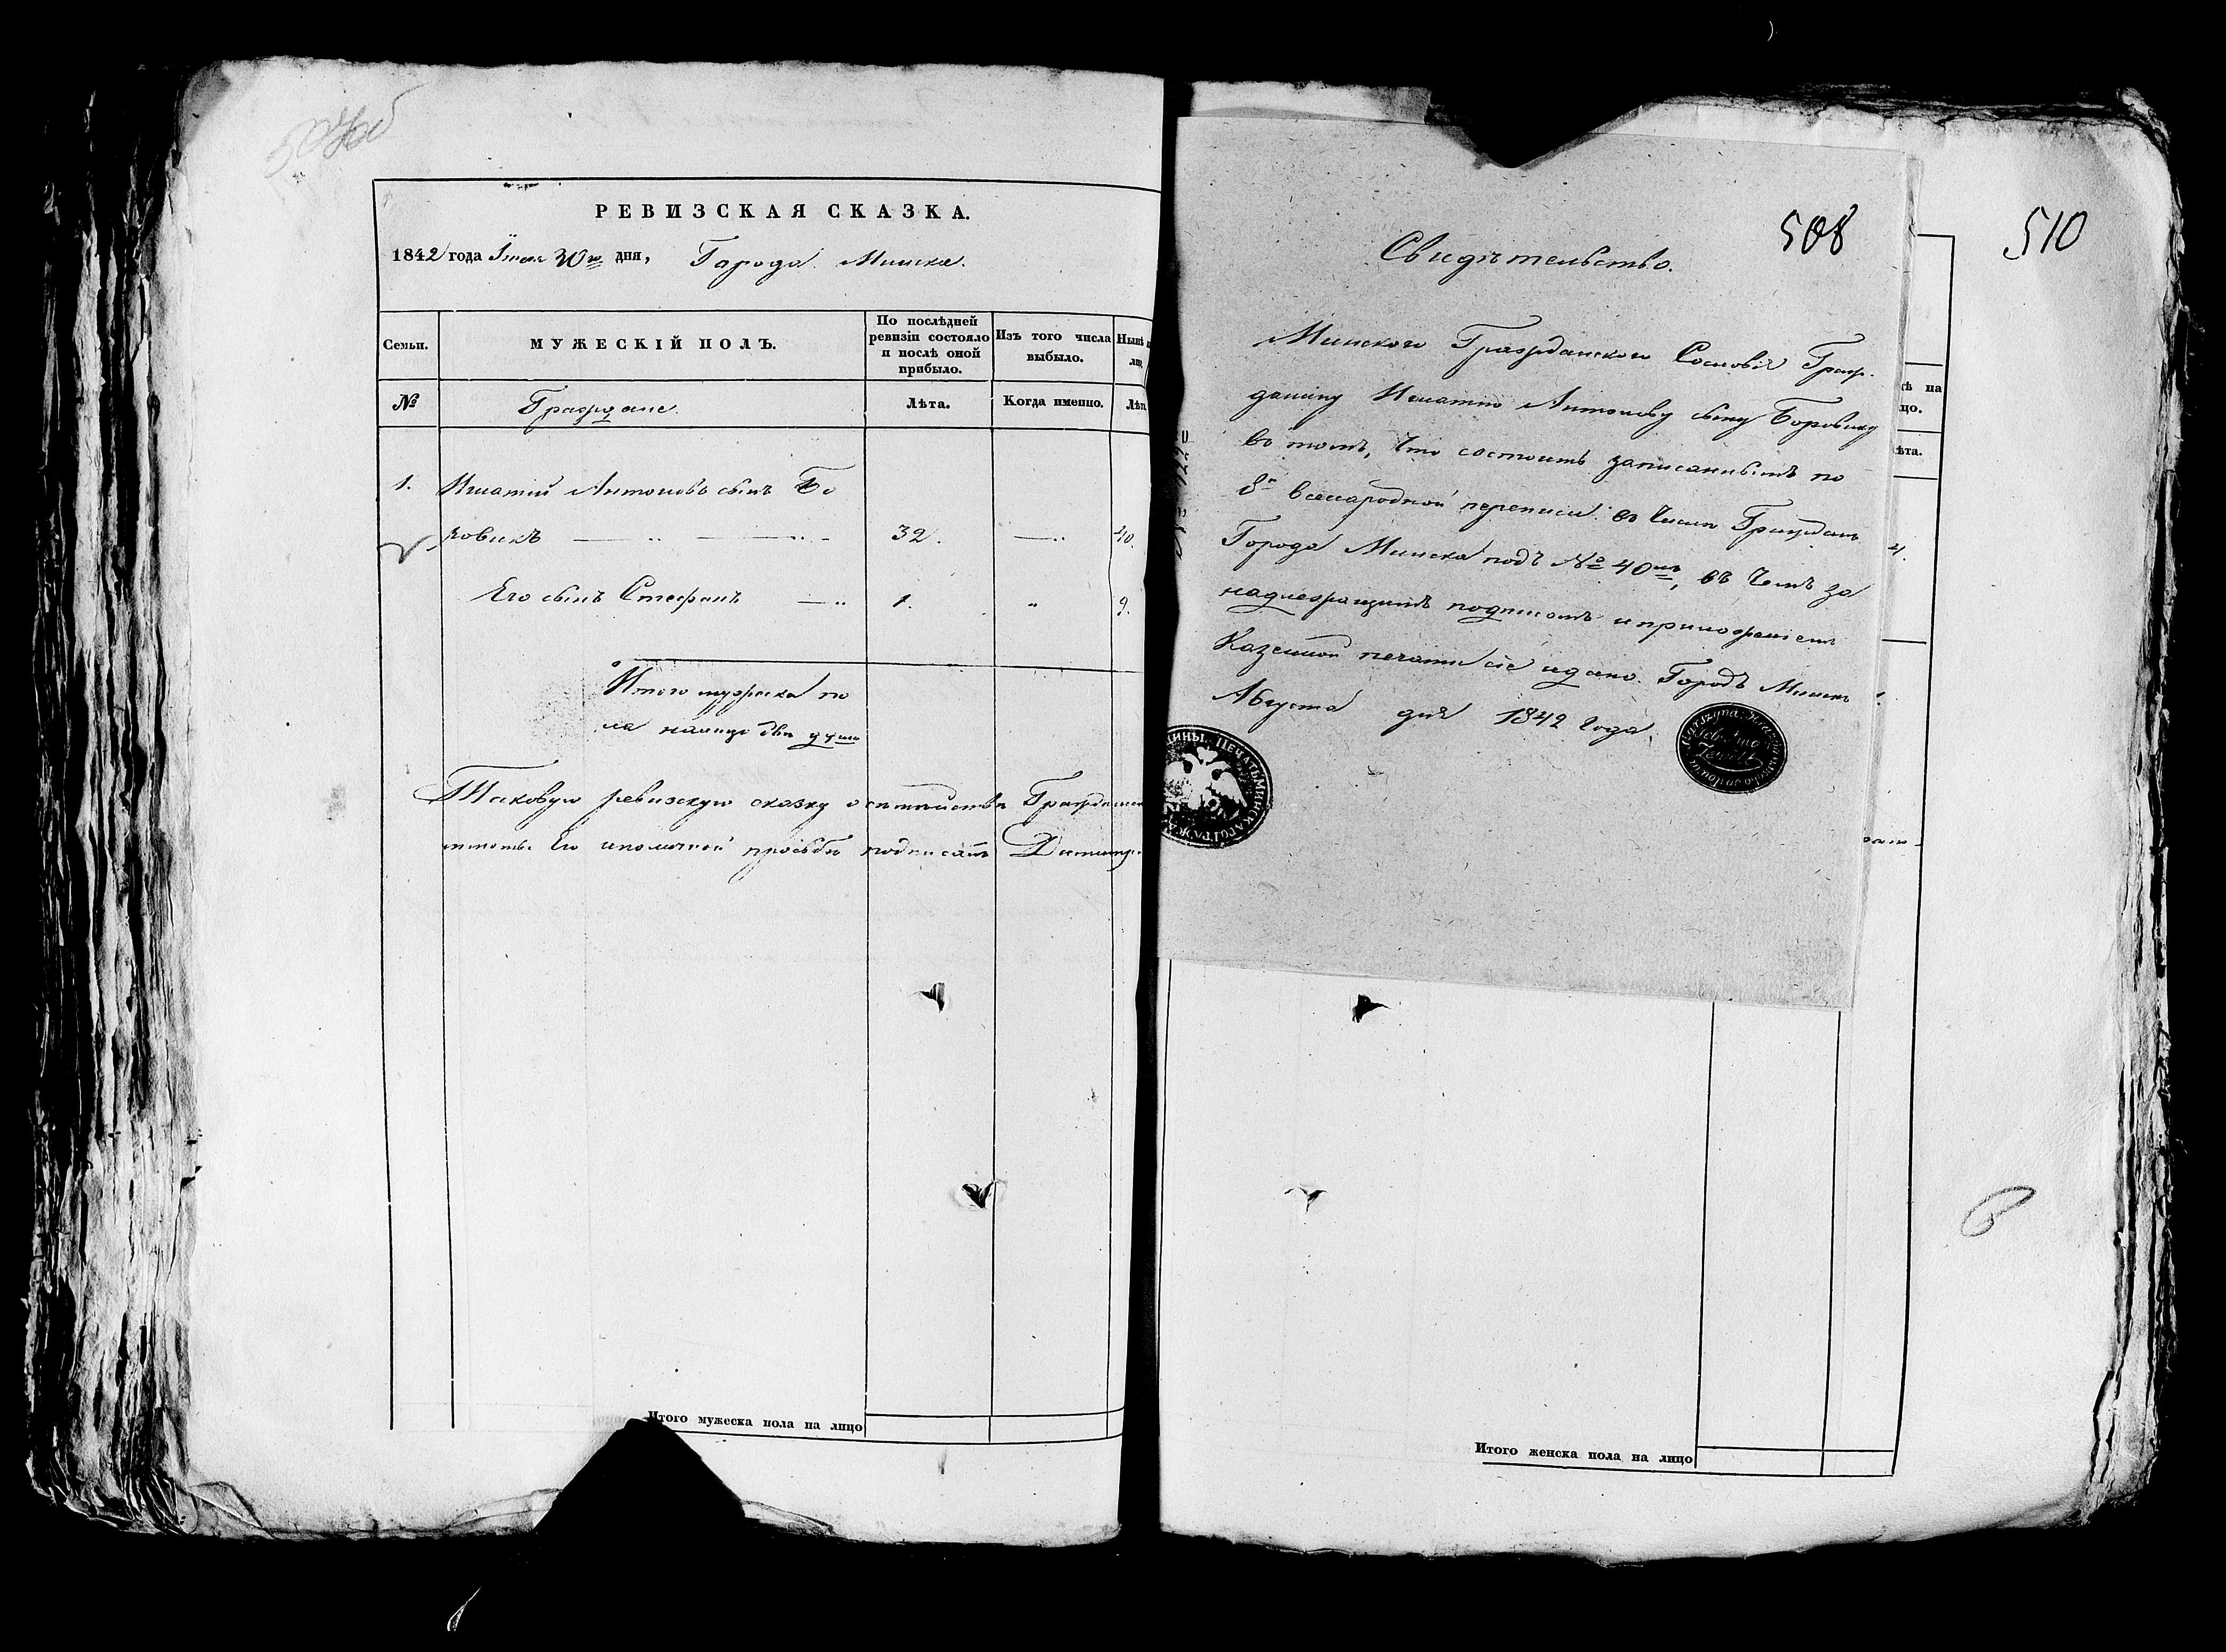 РЕВИЗСКАЯ СКАЗКА.
1842 года Іюля 30го дня, Города Минска.
Семьи.
МУЖЕСКІЙ ПОЛЪ.
По послѣдней
ревизіи состояло
и послѣ оной
прибыло.
Изъ того числа
выбыло.
Нынѣ
№
Граждане.
Лѣта.
Когда именно.
Лѣт
1. Игнатій Антоновъ сынъ Бо
ровикъ 32. 40.
Его сынъ Стефанъ 1. " 9.
Итого мужеска по
ла налицо двѣ души
Таковую ревизскую сказку о семействѣ
Его личной просьбы подписалъ
Итого мужеска пола на лицо
508
Свидѣтельство.
Минского Гражданского Сословія Граж-
данину Игнатію Антонову сыну Боровику
въ томъ, что состоитъ записаннымъ по
8й всенародной переписи въ числѣ Гражданъ
Города Минска подъ № 40мъ, въ чемъ за
надлежащимъ подписомъ и приложеніемъ
Казенной печати сіе идано. Городъ Минскъ
Августа дня 1842 года.
ПЕЧАТЬ МИНСКАГО ГРАЖД
510
ѣ на
цо.
ѣта.
Итого женска пола на лицо